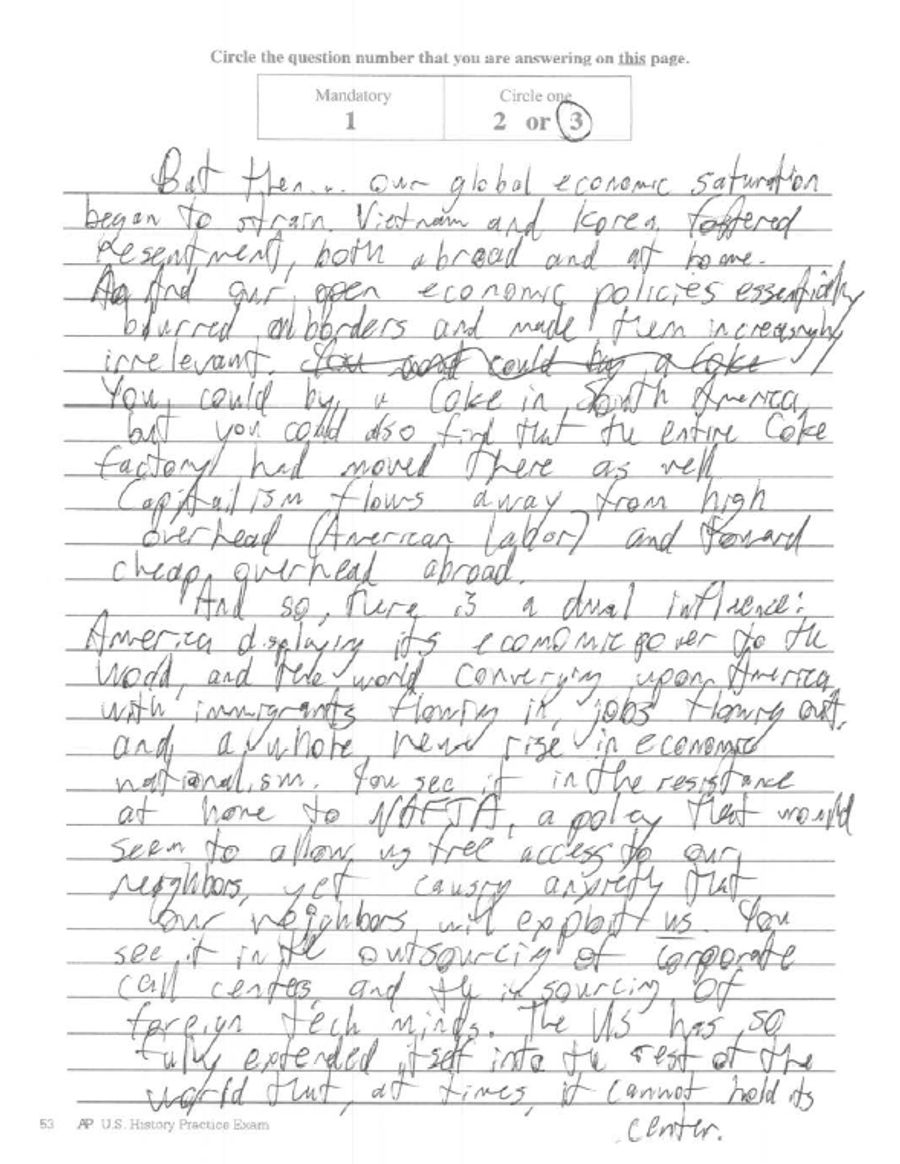 Circle the question number that you are answering on this page.
Mandatory
1
Circle one
2 or 3
But then... our global economic saturation
began to strain. Vietnam and Korea fostered
resentment, both abroad and at home.
And our open economic policies essentially
blurred borders and made them increasingly
irrelevant. You could buy a Coke
You could by a Coke in South America,
but you could also find that the entire Coke
factory had moved there as well.
Capitalism flows away from high
overhead (American labor) and toward
cheap overhead abroad.
And so, there is a dual influence:
America displaying its economic power to the
world, and the world converging upon America,
with immigrants flowing in, jobs flowing out,
and a whole new rise in economic
nationalism. You see it in the resistance
at home to NAFTA, a policy that would
seem to allow us free access to our
neighbors, yet causing anxiety that
our neighbors will exploit us. You
see it in the outsourcing of corporate
call centers and the insourcing of
foreign tech minds. The US has so
fully extended itself into the rest of the
world that, at times, it cannot hold its
center.
53 AP U.S. History Practice Exam